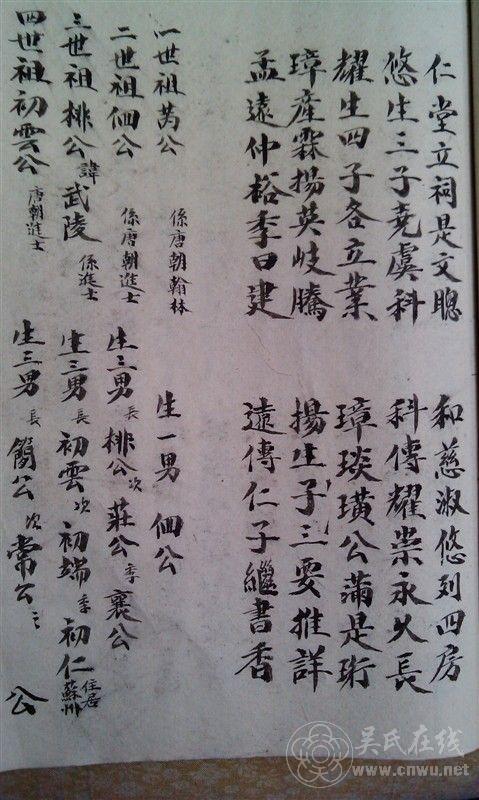 仁堂立祠是文聰 和慈淑悠列四房
悠生三子堯虞科 科傳耀崇永久長
耀生四子各立業 璋琰璜公蒲是珩
璋產霖揚英岐騰 揚生子三要推詳
孟遠仲裕季曰建 遠傳仁子繼書香
一世祖公 係唐朝翰林 生一男 佃公
二世祖佃公 係唐朝進士 生三男 長 桃公 次 莊公 季 襄公
三世祖桃公 諱武陵 係進士 生三男 長 初雲 次 初端 季 初仁 住居蘇州
四世祖初雲公 唐朝進士 生三男 長 簡公 次 常公 三 公
吴氏在线
www.cnwu.net